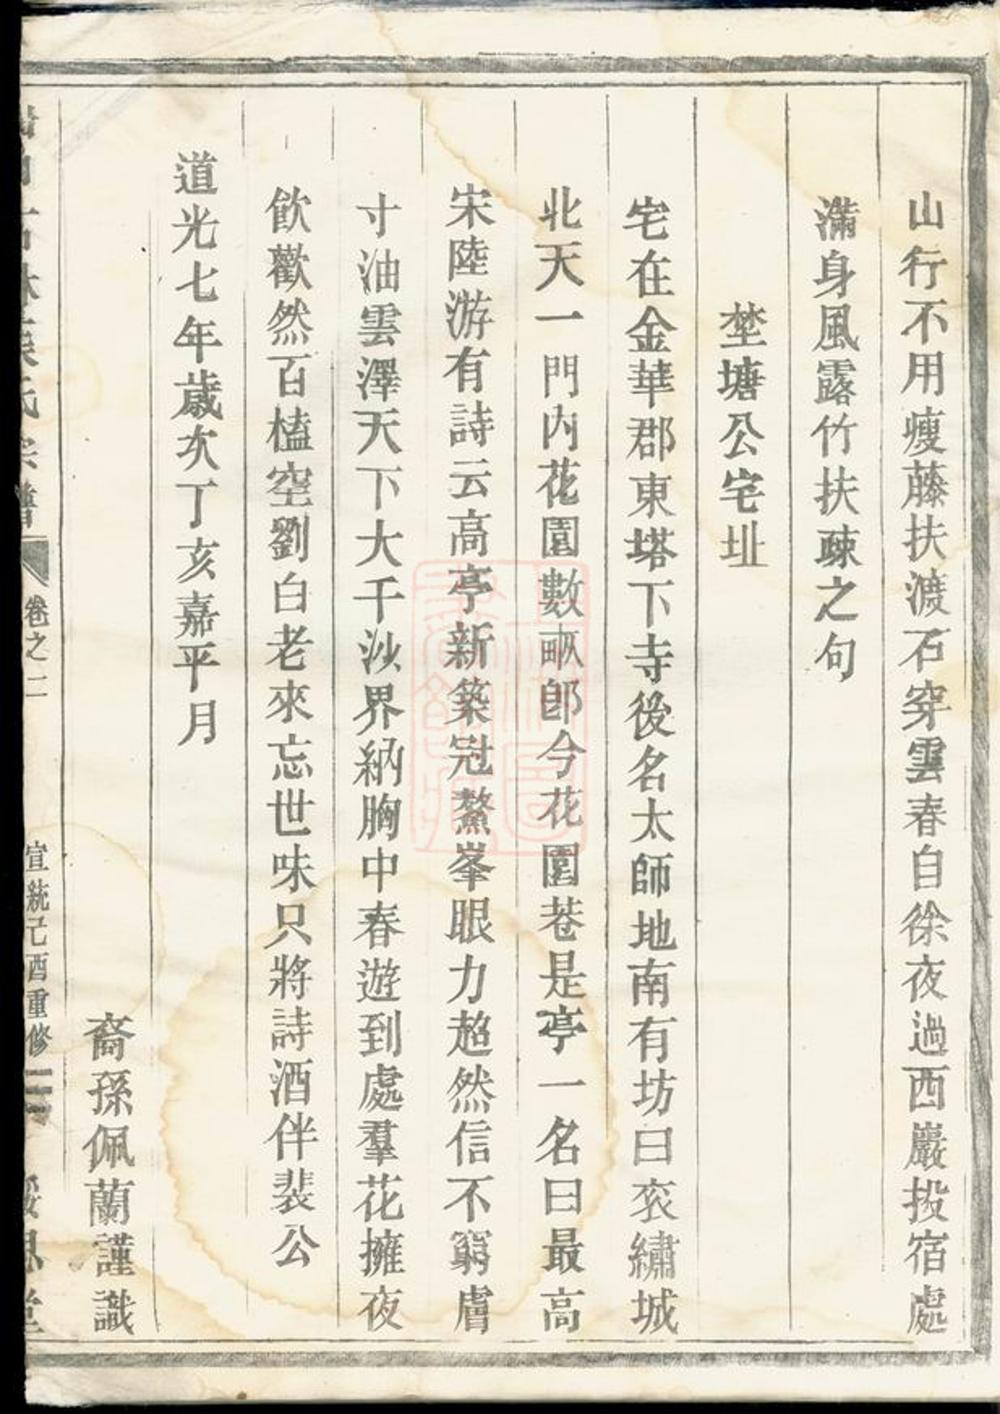 山行不用瘦藤扶渡石穿雲春自徐夜過西巖投宿處
滿身風露竹扶疎之句
埜塘公宅址
宅在金華郡東塔下寺後名太師地南有坊曰衮繡城
北天一門內花園數畝卽今花園巷是亭一名曰最高
宋陸游有詩云高亭新築冠鰲峯眼力超然信不窮膚
寸油雲澤天下大千沙界納胸中春遊到處羣花擁夜
飲歡然百榼空劉白老來忘世味只將詩酒伴裴公
道光七年歲次丁亥嘉平月
裔孫佩蘭謹識
氏宗譜
卷之二
宣統己酉重修